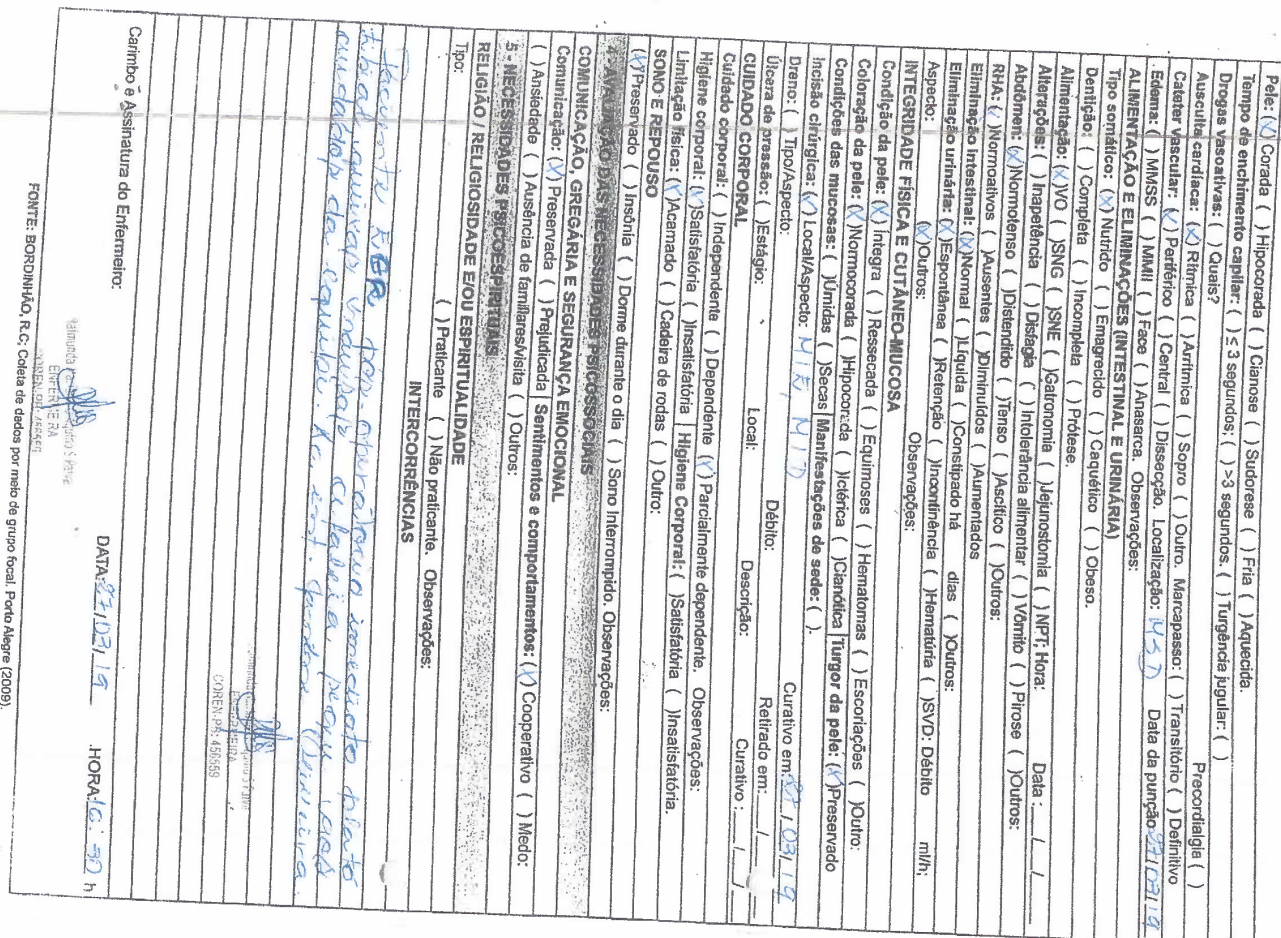 Pele: (X) Corada ( ) Hipocorada ( ) Cianose ( ) Sudorese ( ) Fria ( ) Aquecida.
Tempo de enchimento capilar: ( ) ≤ 3 segundos; ( ) >3 segundos. ( ) Turgência jugular: ( )
Drogas vasoativas: ( ) Quais?
Ausculta cardíaca: (X) Rítmica ( ) Arrítmica ( ) Sopro ( ) Outro. Marcapasso: ( ) Transitório ( ) Definitivo Precordialgia ( )
Cateter vascular: (X) Periférico ( ) Central ( ) Dissecção. Localização: MSD Data da punção 27/03/19
Edema: ( ) MMSS ( ) MMII ( ) Face ( ) Anasarca. Observações:
ALIMENTAÇÃO E ELIMINAÇÕES (INTESTINAL E URINÁRIA)
Tipo somático: (X) Nutrido ( ) Emagrecido ( ) Caquético ( ) Obeso.
Dentição: ( ) Completa ( ) Incompleta ( ) Prótese.
Alimentação: (X)VO ( )SNG ( )SNE ( )Gatronomia ( )Jejunostomia ( ) NPT; Hora: Data :___/___/___
Alterações: ( ) Inapetência ( ) Disfagia ( ) Intolerância alimentar ( ) Vômito ( ) Pirose ( )Outros:
Abdômen: (X)Normotenso ( )Distendido ( )Tenso ( )Ascítico ( )Outros:
RHA: (X)Normoativos ( )Ausentes ( )Diminuídos ( )Aumentados
Eliminação intestinal: (X)Normal ( )Líquida ( )Constipado há dias ( )Outros:
Eliminação urinária: (X)Espontânea ( )Retenção ( )Incontinência ( )Hematúria ( )SVD: Débito ml/h;
Aspecto: (X)Outros: Observações:
INTEGRIDADE FÍSICA E CUTÂNEO-MUCOSA
Condição da pele: (X) Íntegra ( ) Ressecada ( ) Equimoses ( ) Hematomas ( ) Escoriações ( )Outro:
Coloração da pele: (X)Normocorada ( )Hipocorada ( )Ictérica ( )Cianótica Turgor da pele: (X)Preservado
Condições das mucosas: ( )Úmidas ( )Secas Manifestações de sede: ( ).
Incisão cirúrgica: (X) Local/Aspecto: MIE, MID Curativo em: 27/03/19
Dreno: ( ) Tipo/Aspecto: Débito: Retirado em: __/__/__
Úlcera de pressão: ( )Estágio: Local: Descrição: Curativo :___/___/
CUIDADO CORPORAL
Cuidado corporal: ( ) Independente ( ) Dependente (X) Parcialmente dependente. Observações:
Higiene corporal: (X)Satisfatória ( )Insatisfatória Higiene Corporal: ( )Satisfatória ( )Insatisfatória.
Limitação física: (X)Acamado ( ) Cadeira de rodas ( ) Outro:
SONO E REPOUSO
(X)Preservado ( )Insônia ( ) Dorme durante o dia ( ) Sono Interrompido. Observações:
4 - AVALIAÇÃO DAS NECESSIDADES PSICOSSOCIAIS
COMUNICAÇÃO, GREGÁRIA E SEGURANÇA EMOCIONAL
Comunicação: (X) Preservada ( ) Prejudicada Sentimentos e comportamentos: (X) Cooperativo ( ) Medo:
( ) Ansiedade ( ) Ausência de familiares/visita ( ) Outros:
5 - NECESSIDADES PSICOESPIRITUAIS
RELIGIÃO / RELIGIOSIDADE E/OU ESPIRITUALIDADE
Tipo: ( ) Praticante ( ) Não praticante. Observações:
INTERCORRÊNCIAS
Paciente pós-operatório imediato
tibial
cuidados da equipe.
ENFERMEIRA
COREN-PA: 456559
Carimbo e Assinatura do Enfermeiro:
ENFERMEIRA
COREN-PA: 456559
DATA: 27/03/19 .HORA: 16:30 h
FONTE: BORDINHÃO, R.C; Coleta de dados por meio de grupo focal. Porto Alegre (2009).